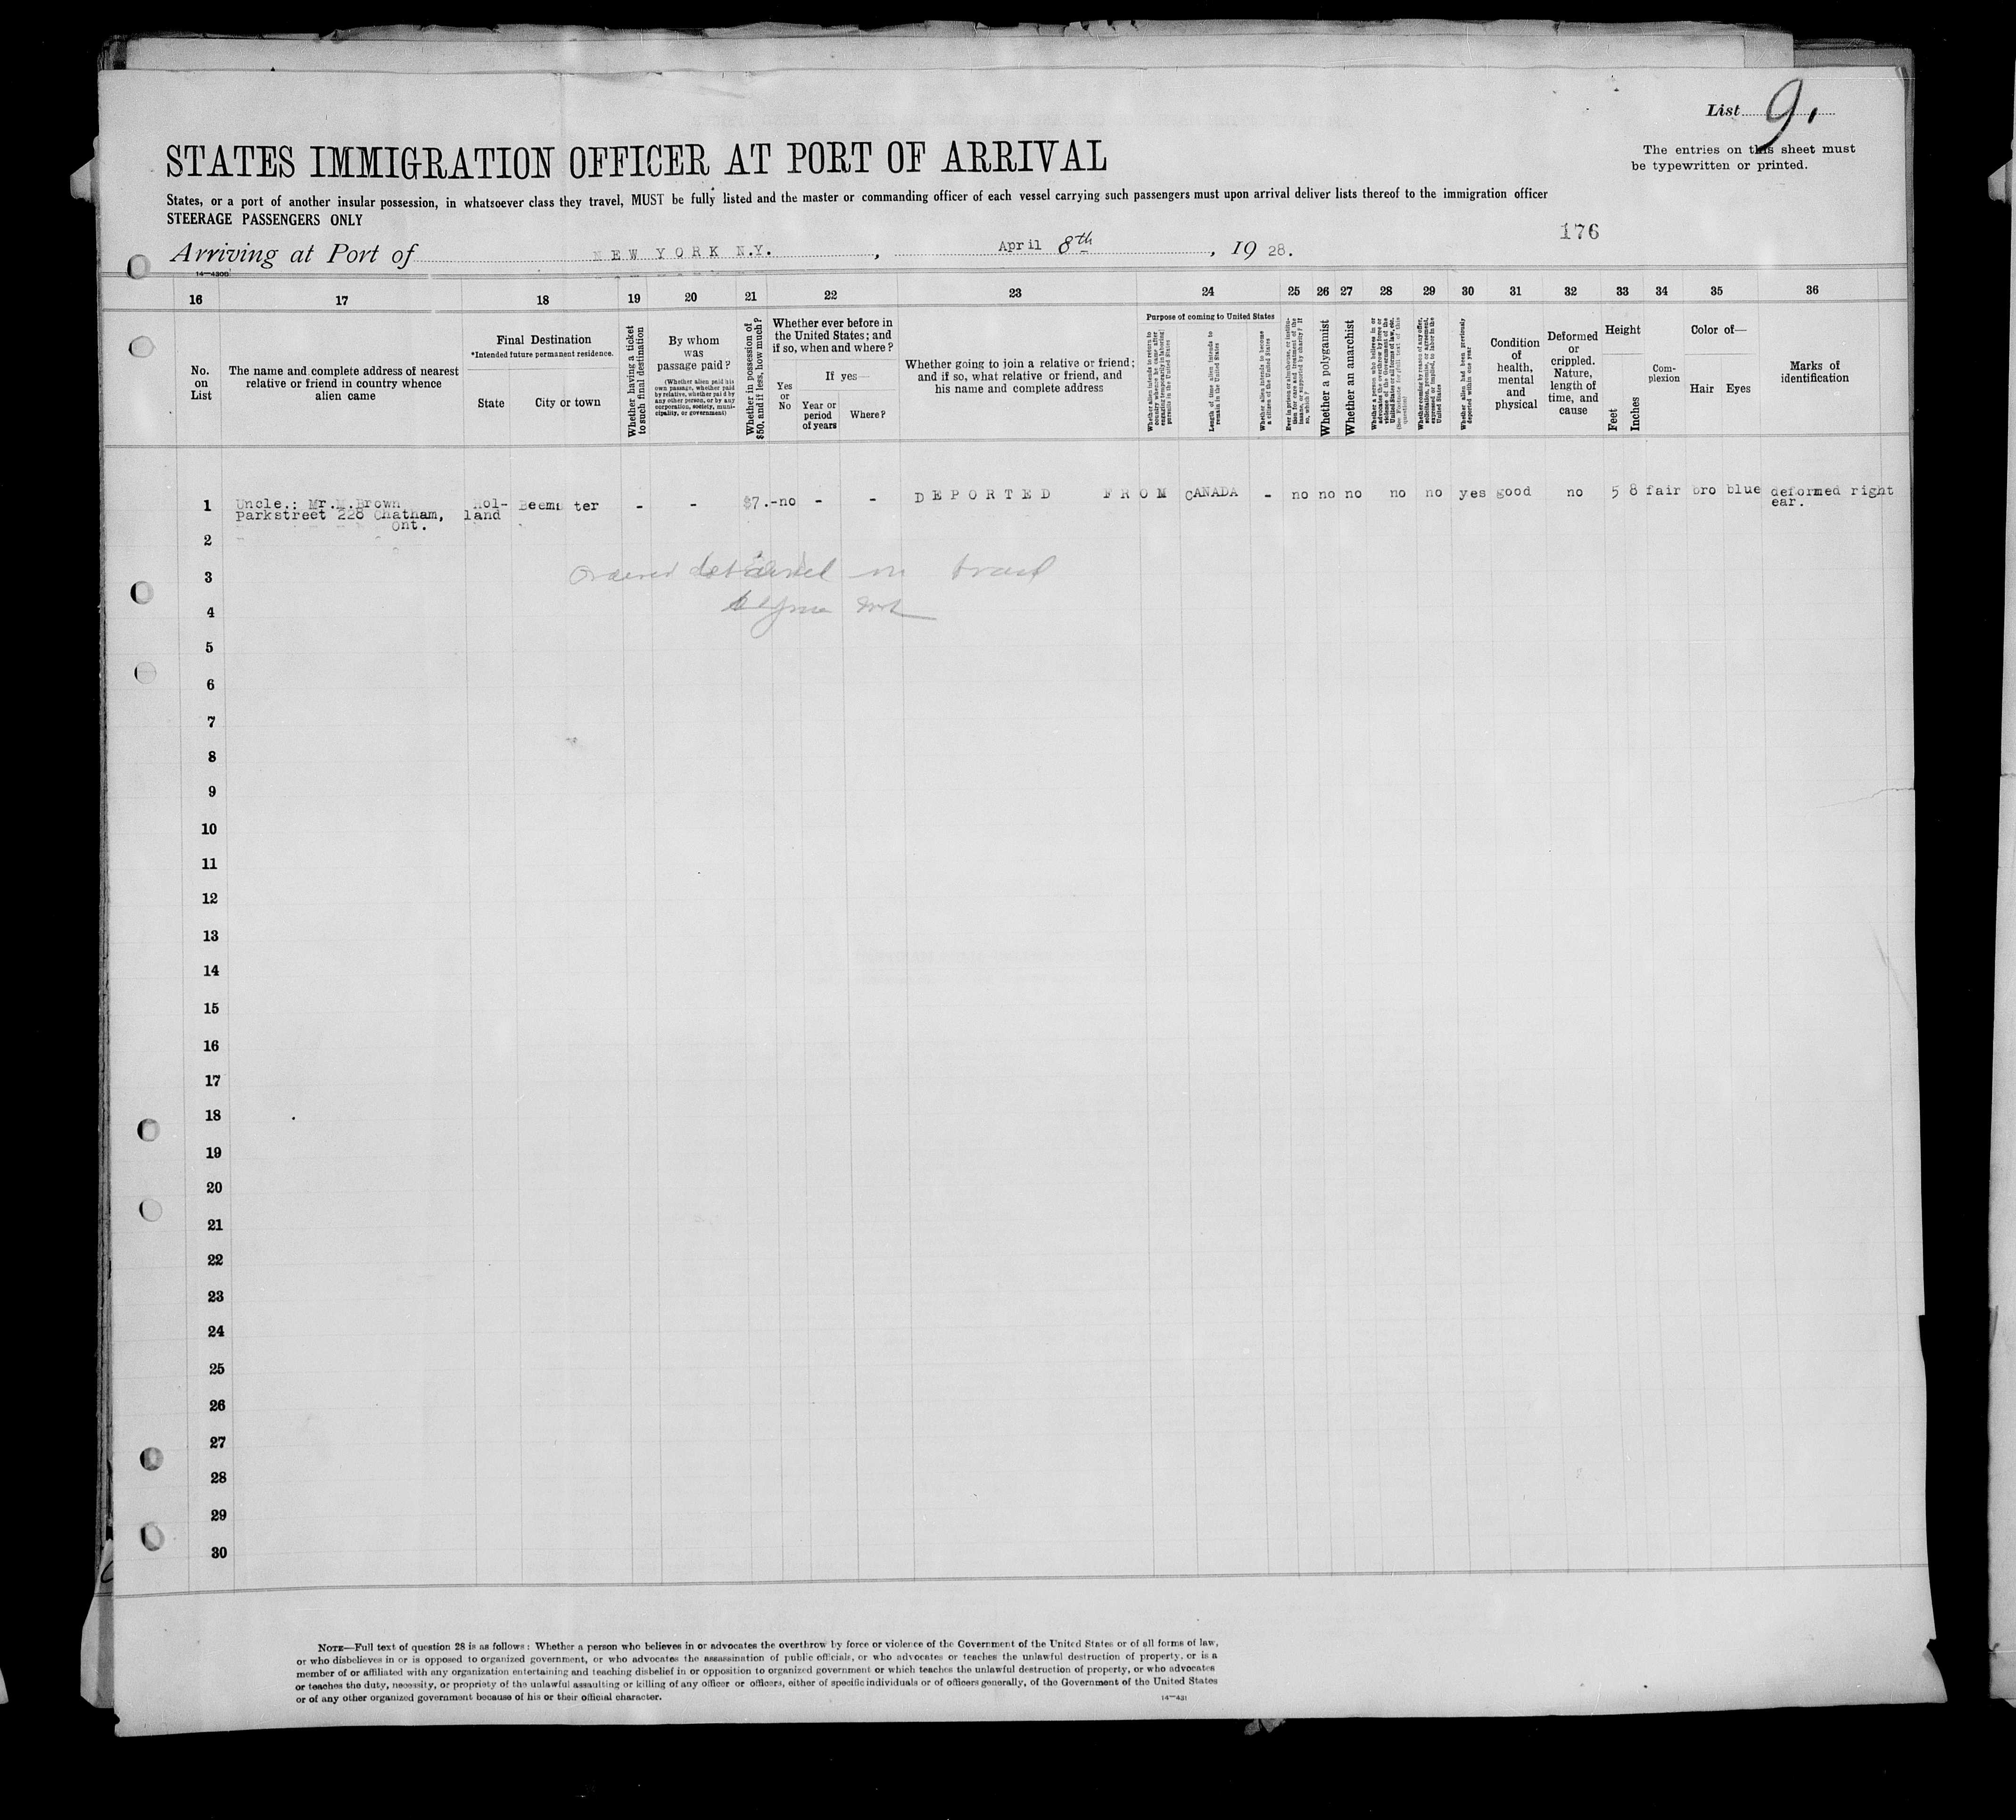 List 9.
The entries on this sheet must
be typewritten or printed.
STATES IMMIGRATION OFFICER AT PORT OF ARRIVAL
States, or a port of another insular possession, in whatsoever class they travel, MUST be fully listed and the master or commanding officer of each vessel carrying such passengers must upon arrival deliver lists thereof to the immigration officer
STEERAGE PASSENGERS ONLY
176
Arriving at Port of NEW YORK N.Y., April 8th, 19 28.
14—4300
16 17 18 19 20 21 22 23 24 25 26 27 28 29 30 31 32 33 34 35 36
No.
on
List
The name and complete address of nearest
relative or friend in country whence
alien came
Final Destination
*Intended future permanent residence.
State City or town
Whether having a ticket
to such final destination
By whom
was
passage paid?
(Whether alien paid his
own passage, whether paid
by relative, whether paid by
any other person, or by any
corporation, society, muni-
cipality, or government)
Whether in possession of
$50, and if less, how much?
Whether ever before in
the United States; and
if so, when and where?
Yes
or
No
If yes—
Year or
period
of years
Where?
Whether going to join a relative or friend;
and if so, what relative or friend, and
his name and complete address
Purpose of coming to United States
Whether alien intends to return to
country whence he came after
engaging temporarily in laboring
pursuits in the United States
Length of time alien intends to
remain in the United States
Whether alien intends to become
a citizen of the United States
Ever in prison or almshouse, or institu-
tion for care and treatment of the
insane, or supported by charity? If
so, which?
Whether a polygamist
Whether an anarchist
Whether a person who believes in or
advocates the overthrow by force or
violence of the Government of the
United States or all forms of law, etc.
(See Footnote for full text of this
question)
Whether coming by reason of any offer,
solicitation, promise, or agreement,
expressed or implied, to labor in the
United States
Whether alien had been previously
deported within one year
Condition
of
health,
mental
and
physical
Deformed
or
crippled.
Nature,
length of
time, and
cause
Height
Feet
Inches
Com-
plexion
Color of—
Hair Eyes
Marks of
identification
1 Uncle.: Mr.M.Brown Hol- Beemster - - $7.-no - - DEPORTED FROM CANADA - no no no no no yes good no 5 8 fair bro blue deformed right
Parkstreet 228 Chatham, land ear.
Ont.
2
3 Ordered detained on board
4
5
6
7
8
9
10
11
12
13
14
15
16
17
18
19
20
21
22
23
24
25
26
27
28
29
30
NOTE—Full text of question 28 is as follows: Whether a person who believes in or advocates the overthrow by force or violence of the Government of the United States or of all forms of law,
or who disbelieves in or is opposed to organized government, or who advocates the assassination of public officials, or who advocates or teaches the unlawful destruction of property, or is a
member of or affiliated with any organization entertaining and teaching disbelief in or opposition to organized government or which teaches the unlawful destruction of property, or who advocates
or teaches the duty, necessity, or propriety of the unlawful assaulting or killing of any officer or officers, either of specific individuals or of officers generally, of the Government of the United States
or of any other organized government because of his or their official character.
14—431